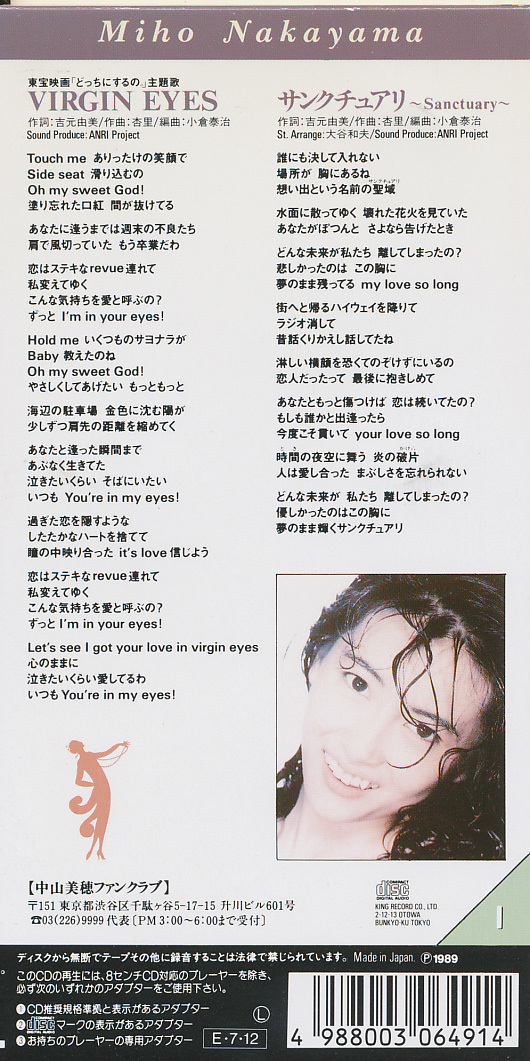 Miho Nakayama
東宝映画「どっちにするの。」主題歌
VIRGIN EYES
作詞:吉元由美/作曲:杏里/編曲:小倉泰治
Sound Produce: ANRI Project
Touch me ありったけの笑顔で
Side seat 滑り込むの
Oh my sweet God!
塗り忘れた口紅 間が抜けてる
あなたに逢うまでは週末の不良たち
肩で風切っていた もう卒業だわ
恋はステキなrevue連れて
私変えてゆく
こんな気持ちを愛と呼ぶの?
ずっと I'm in your eyes!
Hold me いくつものサヨナラが
Baby 教えたのね
Oh my sweet God!
やさしくしてあげたい もっともっと
海辺の駐車場 金色に沈む陽が
少しずつ肩先の距離を縮めてく
あなたと逢った瞬間まで
あぶなく生きてた
泣きたいくらい そばにいたい
いつも You're in my eyes!
過ぎた恋を隠すような
したたかなハートを捨てて
瞳の中映り合った it's love 信じよう
恋はステキなrevue連れて
私変えてゆく
こんな気持ちを愛と呼ぶの?
ずっと I'm in your eyes!
Let's see I got your love in virgin eyes
心のままに
泣きたいくらい愛してるわ
いつも You're in my eyes!
サンクチュアリ 〜Sanctuary〜
作詞:吉元由美/作曲:杏里/編曲:小倉泰治
St. Arrange:大谷和夫/Sound Produce: ANRI Project
誰にも決して入れない
場所が 胸にあるね
サンクチュアリ
想い出という名前の聖域
水面に散ってゆく 壊れた花火を見ていた
あなたがぽつんと さよなら告げたとき
どんな未来が私たち 離してしまったの?
悲しかったのは この胸に
夢のまま残ってる my love so long
街へと帰るハイウェイを降りて
ラジオ消して
昔話くりかえし話してたね
淋しい横顔を恐くてのぞけずにいるの
恋人だったって 最後に抱きしめて
あなたともっと傷つけば 恋は続いてたの?
もしも誰かと出逢ったら
今度こそ貫いて your love so long
と き かけら
時間の夜空に舞う 炎の破片
人は愛し合った まぶしさを忘れられない
どんな未来が 私たち 離してしまったの?
優しかったのはこの胸に
夢のまま輝くサンクチュアリ
【中山美穂ファンクラブ】
〒151 東京都渋谷区千駄ヶ谷5-17-15 升川ビル601号
☎03(226)9999 代表〔PM 3:00〜6:00まで受付〕
COMPACT
disc
DIGITAL AUDIO
KING RECORD CO., LTD.
2-12-13 OTOWA
BUNKYO-KU TOKYO
1
ディスクから無断でテープその他に録音することは法律で禁じられています。 Made in Japan. Ⓟ1989
このCDの再生には、8センチCD対応のプレーヤーを除き、
必ず次のいずれかのアダプターをご使用下さい。
❶CD推奨規格準拠と表示があるアダプター
❷COMPACT disc DIGITAL AUDIOマークの表示があるアダプター
❸お持ちのプレーヤーの専用アダプター
Ⓛ
E・7・12
4 988003 064914